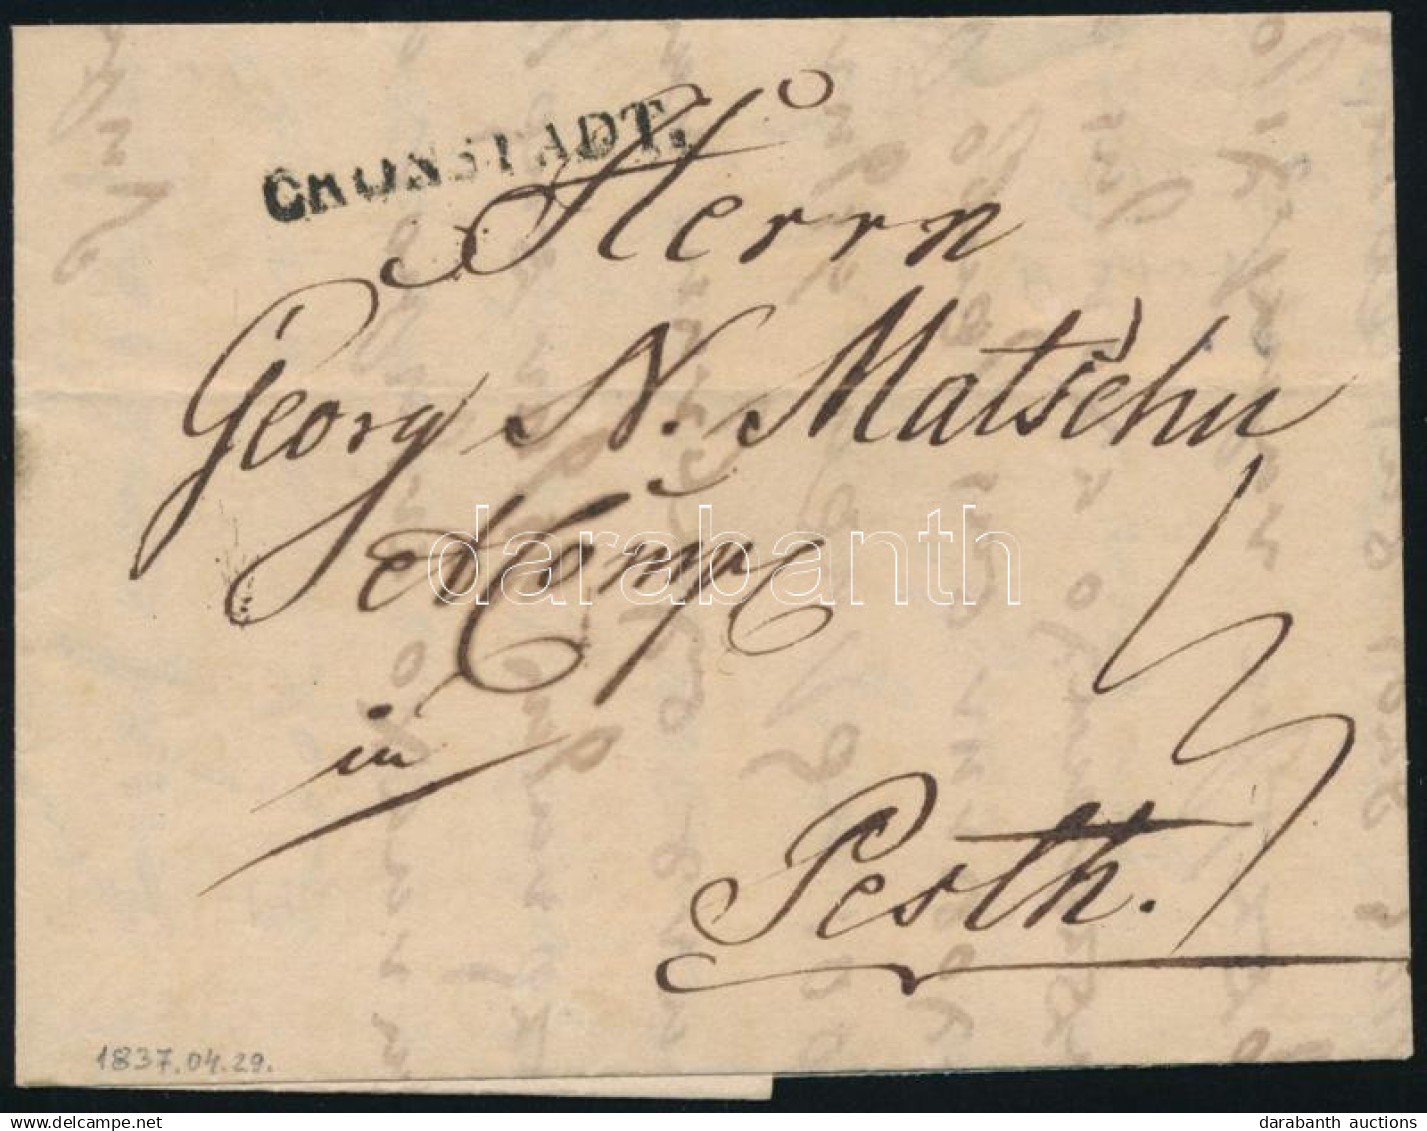 CRONSTADT.
Herrn
Georg N. Matschu
et Comp
in
Pesth.
1837.04.29.
darabanth
darabanth auctions